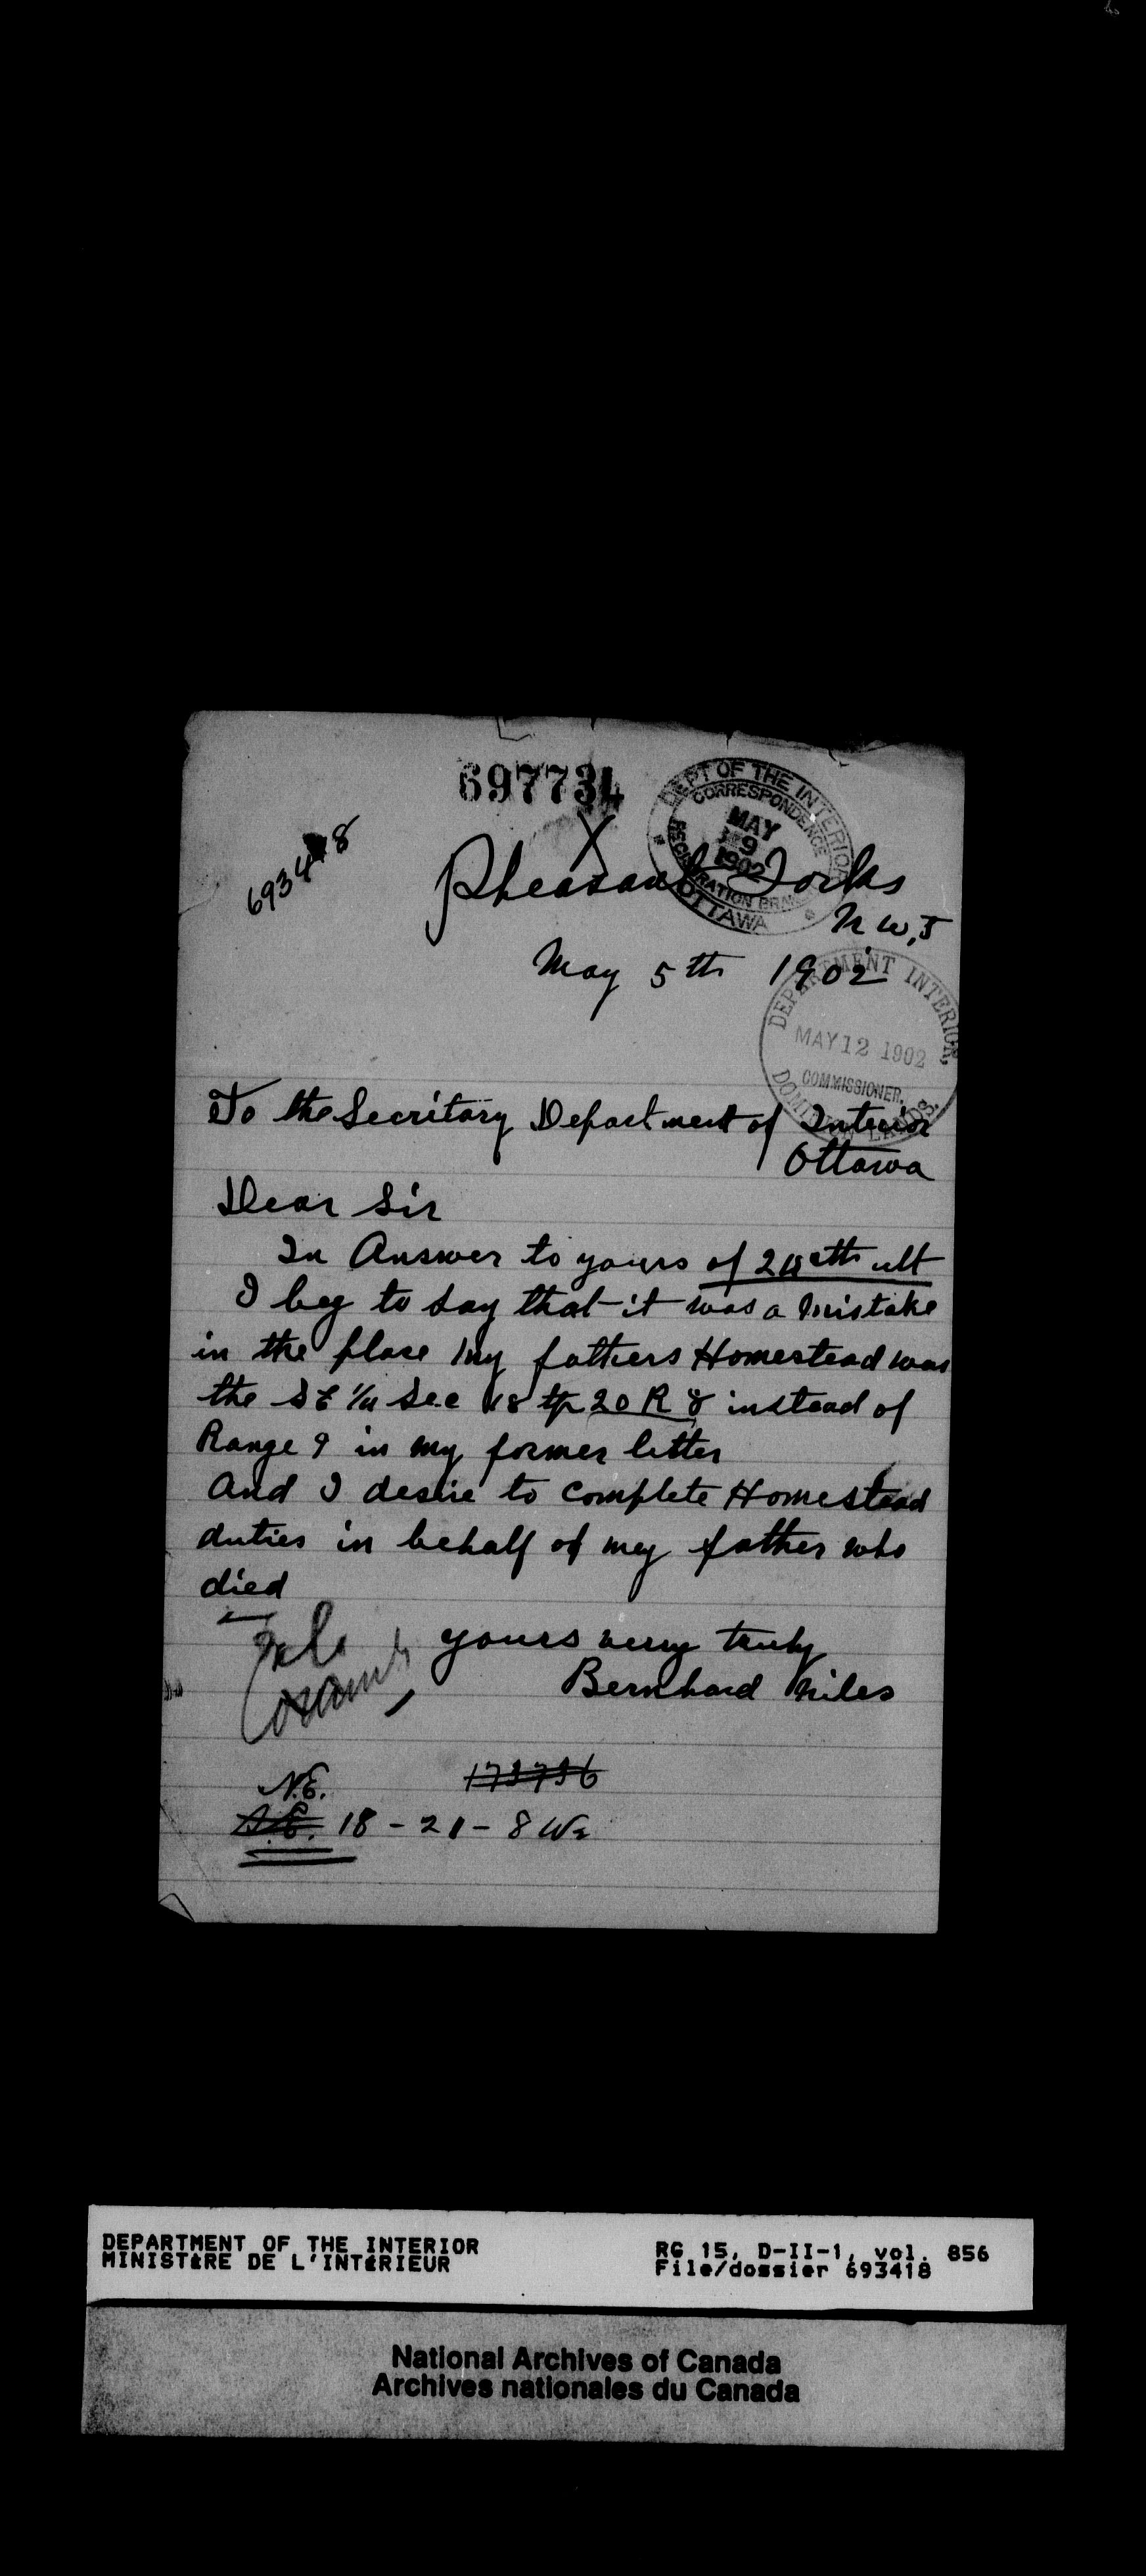 697731
693418
DEPT OF THE INTERIOR
CORRESPONDENCE
MAY
9
1902
REGISTRATION BRANCH
OTTAWA
Pheasant Forks
N W, T
May 5th 1902
DEPARTMENT INTERIOR,
MAY 12 1902
COMMISSIONER,
DOMINION LANDS.
To the Secritary Department of Interior
Ottawa
Dear Sir
In Answer to yours of ult
I beg to say that it was a Mistake
in the place My fathers Homestead was
the S E 1/4 Sec 18 tp 20 R 8 instead of
Range 9 in my former letter
And I desire to complete Homestead
duties in behalf of my father who
died
yours very truly
Bernhard Niles
N.E.
173736
S.E. 18 - 21 - 8 W2
DEPARTMENT OF THE INTERIOR
MINISTÈRE DE L'INTÉRIEUR
RG 15, D-II-1, vol. 856
File/dossier 693418
National Archives of Canada
Archives nationales du Canada